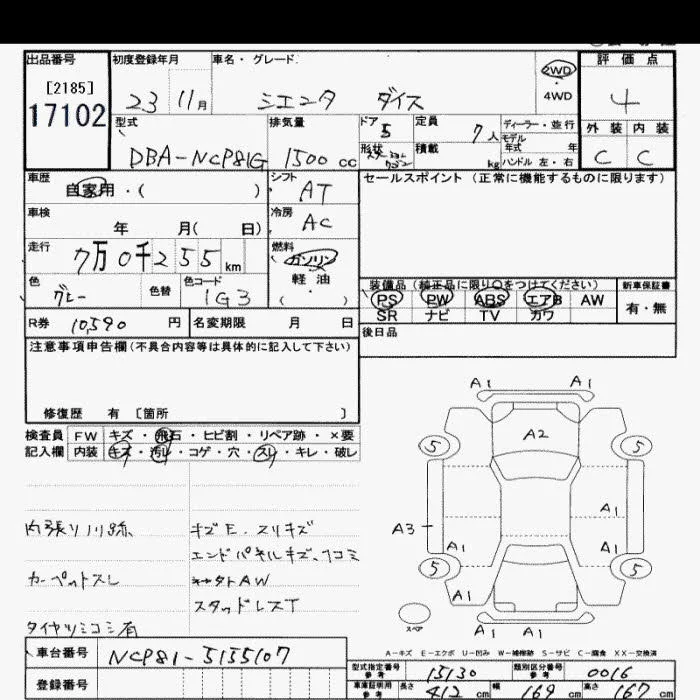 出品番号 初度登録年月 車名・グレード 評価点
[2185]
17102
23 11月 シエンタ ダイス
2WD
・
4WD
4
型式 排気量 ドア 定員 ディーラー・並行 外装 内装
DBA-NCP81G 1500cc 5 7人
形状 積載 kg
モデル年式 年
ハンドル 左・右
C C
車歴 自家用・( ) シフト AT
セールスポイント(正常に機能するものに限ります)
車検 年 月( 日) 冷房 AC
走行 7万0千255km 燃料 ガソリン
軽油
・( )
色 グレー 色替 色コード 1G3
装備品(純正品に限り○をつけてください) 新車保証書
PS PW ABS エアB AW 有・無
SR ナビ TV カワ
R券 10,590円 名変期限 月 日
後日品
注意事項申告欄(不具合内容等は具体的に記入して下さい)
修復歴 有 〔箇所 〕
検査員 FW キズ・飛石・ヒビ割・リペア跡・×要
記入欄 内装 キズ・汚レ・コゲ・穴・スレ・キレ・破レ
A1 A1
A2
5 5
A1
A3
A1 A1
5 5
A1 A1
スペア
A1 A1
内張リノリ跡
キズE、スリキズ
エンドパネルキズ、凹コミ
カーペットスレ
キャタトAW
スタッドレスT
タイヤツミコミ有
A-キズ E-エクボ U-凹み W-補修跡 S-サビ C-腐食 XX-交換済
車台番号 NCP81-5155107
登録番号
型式指定番号 参考 15130 類別区分番号 参考 0016
車庫証明用 参考 長さ 412cm 幅 169cm 高さ 167cm